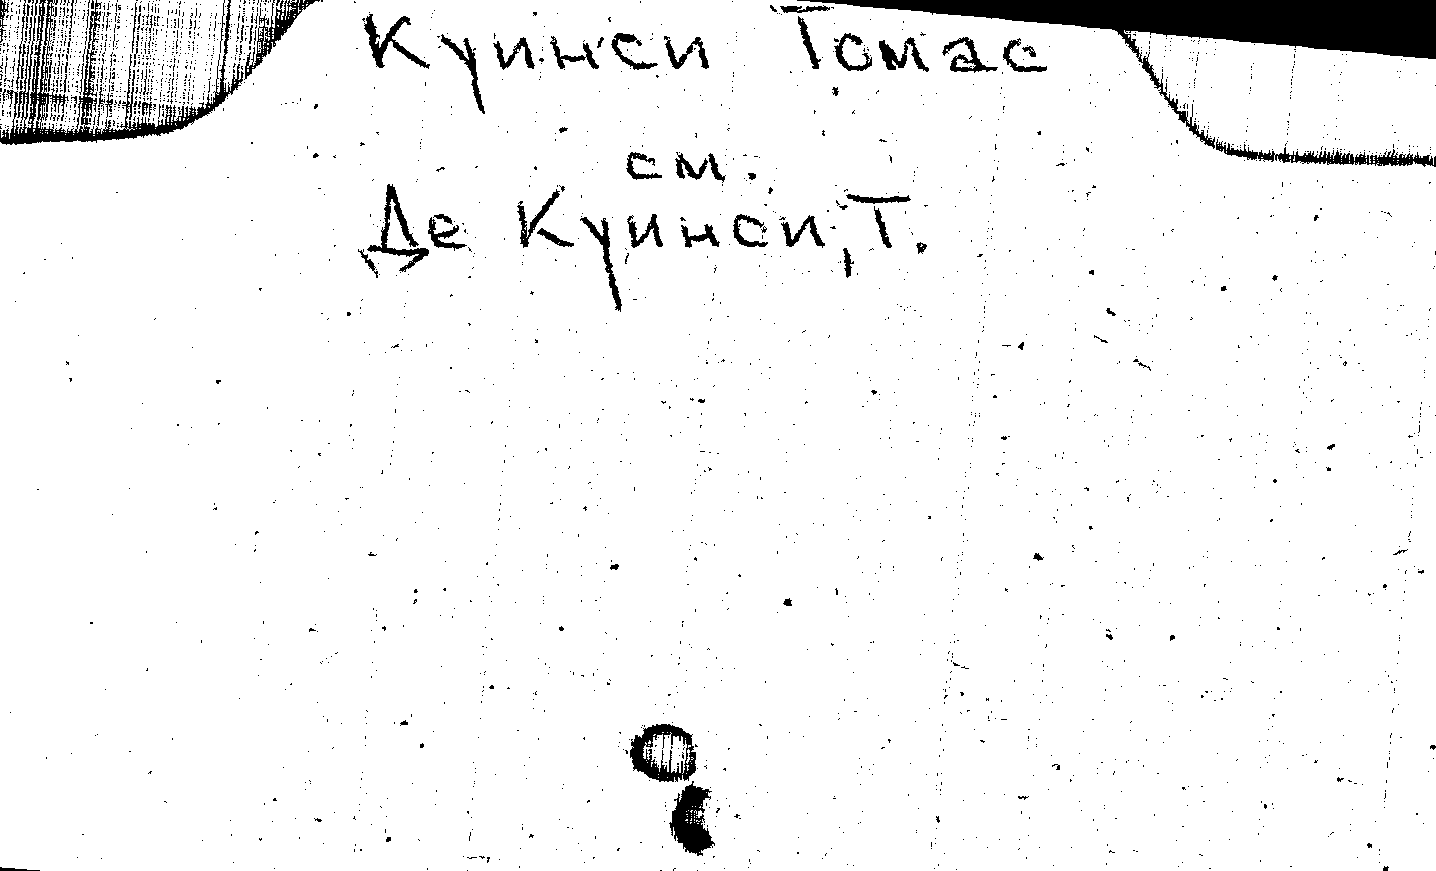 Куинси Томас
см.
Де Куинси, Т.